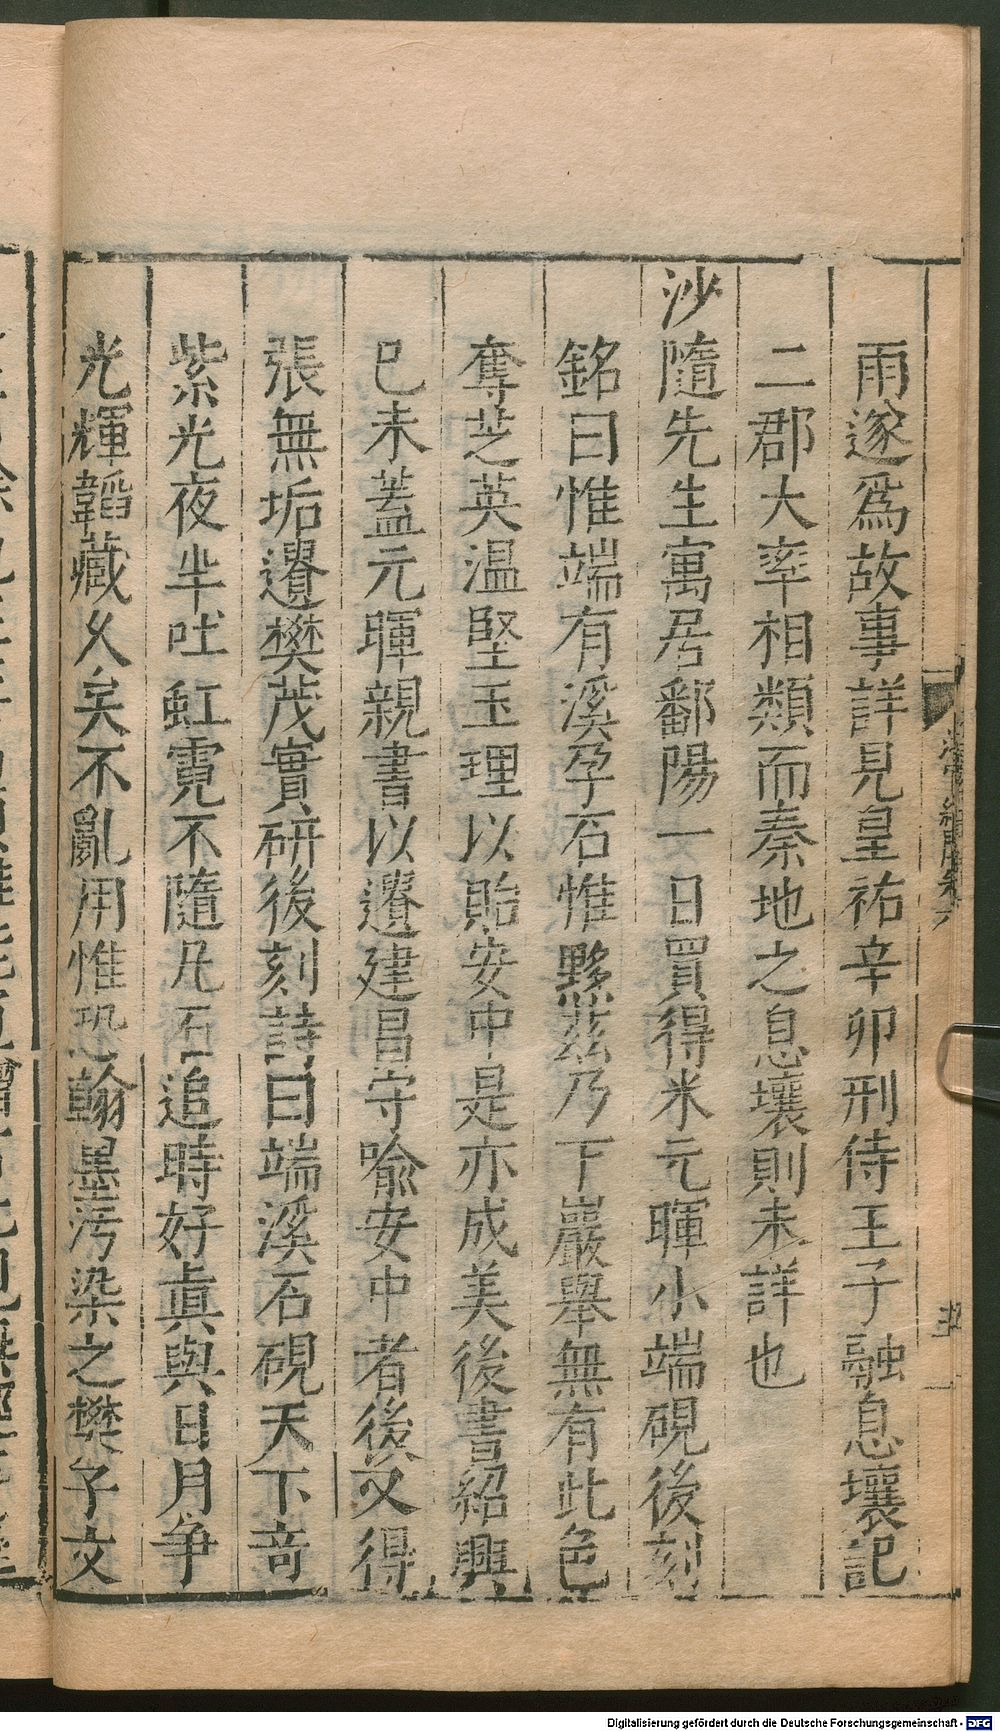 雨遂爲故事詳見皇祐辛卯刑侍王子融息壤記
二郡大率相類而秦地之息壤則未詳也
沙隨先生寓居鄱陽一日買得米元暉小端硯後刻
銘曰惟端有溪孕石惟黟茲乃下巖舉無有此色
奪芝英温堅玉理以貽安中是亦成美後書紹興
巳未蓋元暉親書以遺建昌守喻安中者後又得
張無垢遺樊茂實研後刻詩曰端溪石硯天下竒
紫光夜半吐虹霓不隨凡石追時好眞與日月争
光輝韜藏乆矣不亂用惟恐翰墨汚染之樊子文
Digitalisierung gefördert durch die Deutsche Forschungsgemeinschaft - DFG